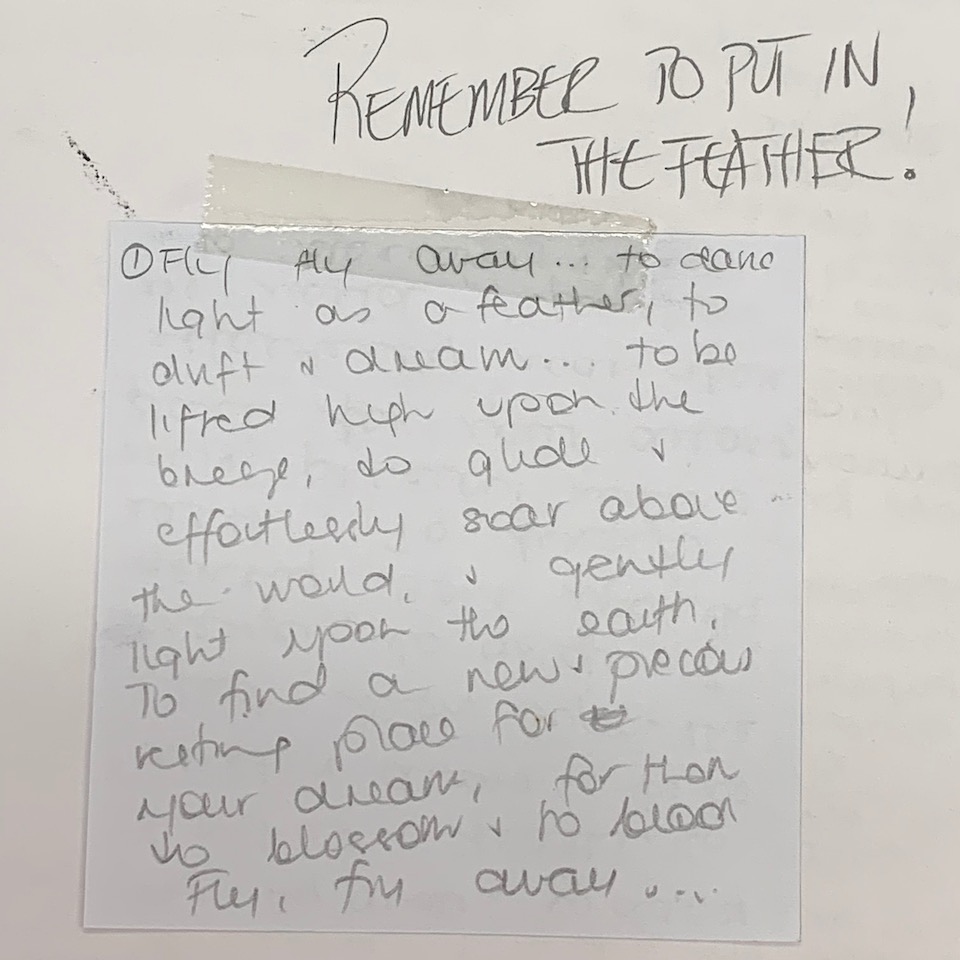 REMEMBER TO PUT IN
THE FEATHER!
① Fly fly away... to dance
light as a feather, to
drift & dream... to be
lifted high upon the
breeze, to glide &
effortlessly soar above
the world, & gently
light upon the earth,
To find a new & precious
resting place for
your dream, for them
to blossom & to
Fly, fly away & ...